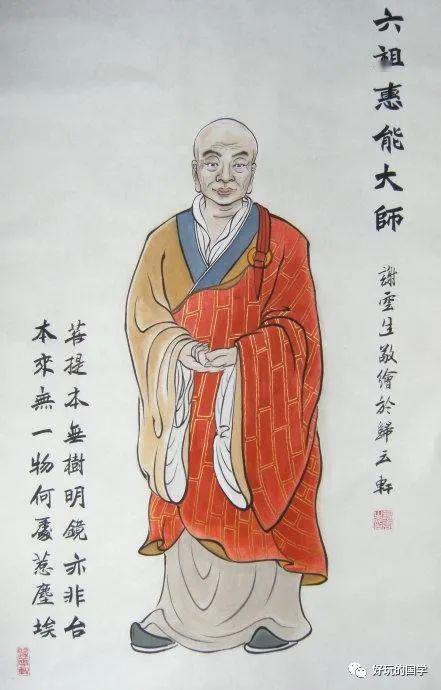 六祖惠能大師
謝雲生敬繪於歸云軒
菩提本無樹明鏡亦非台
本來無一物何處惹塵埃
好玩的国学